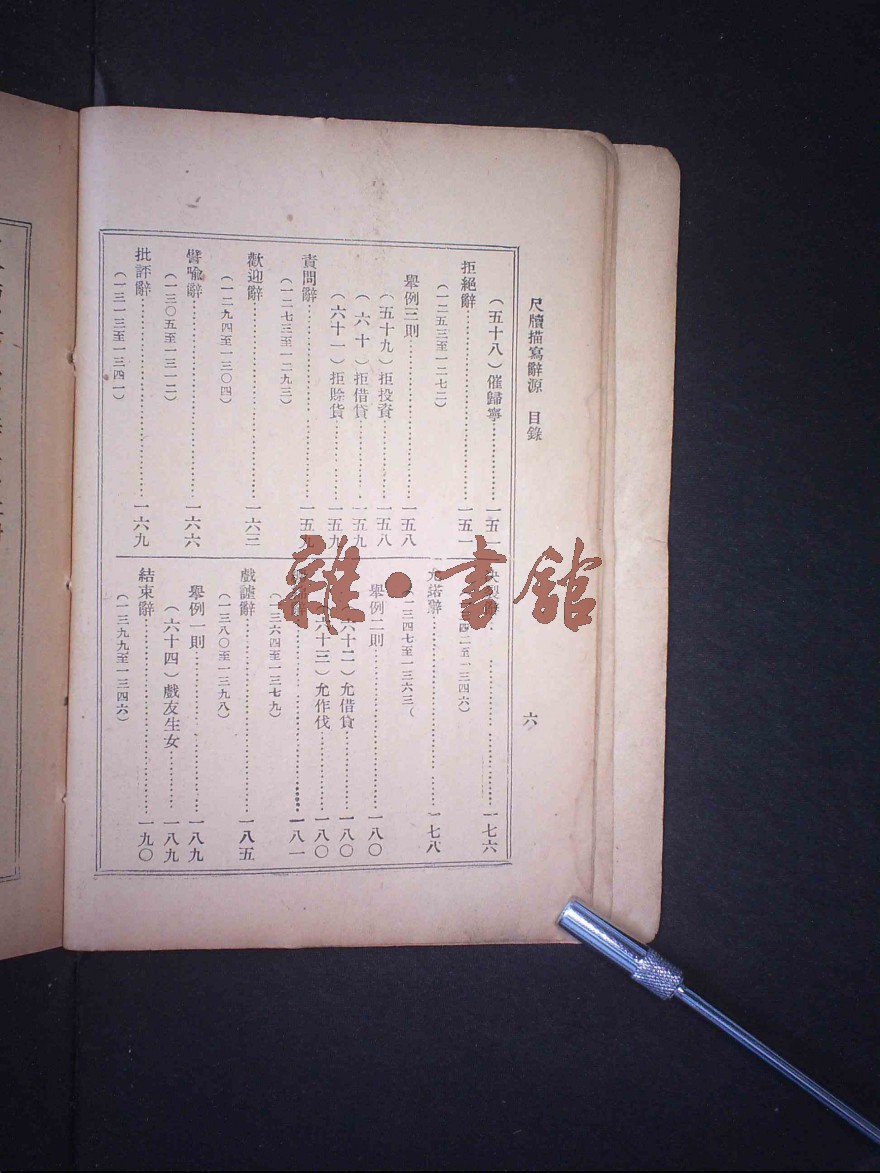 尺牘描寫辭源　目錄
六
（五十八）催歸寧……………一五一
拒絕辭……………一五一
（一二五三至一二七二）
舉例三則……………一五八
（五十九）拒投資……………一五八
（六十）拒借貸……………一五九
（六十一）拒賒貨……………一五九
責問辭……………一五九
（一二七三至一二九三）
歡迎辭……………一六三
（一二九四至一三〇四）
譬喻辭……………一六六
（一三〇五至一三一二）
批評辭……………一六九
（一三一三至一三四一）
……………一七六
四二至一三四六）
允諾辭……………一七八
（一三四七至一三六三（
舉例二則……………一八〇
六十二）允借貸……………一八〇
六十三）允作伐……………一八〇
……………一八一
（一三六四至一三七九）
戲謔辭……………一八五
（一三八〇至一三九八）
舉例一則……………一八九
（六十四）戲友生女……………一八九
結束辭……………一九〇
（一三九九至一三四六）
雜·書館